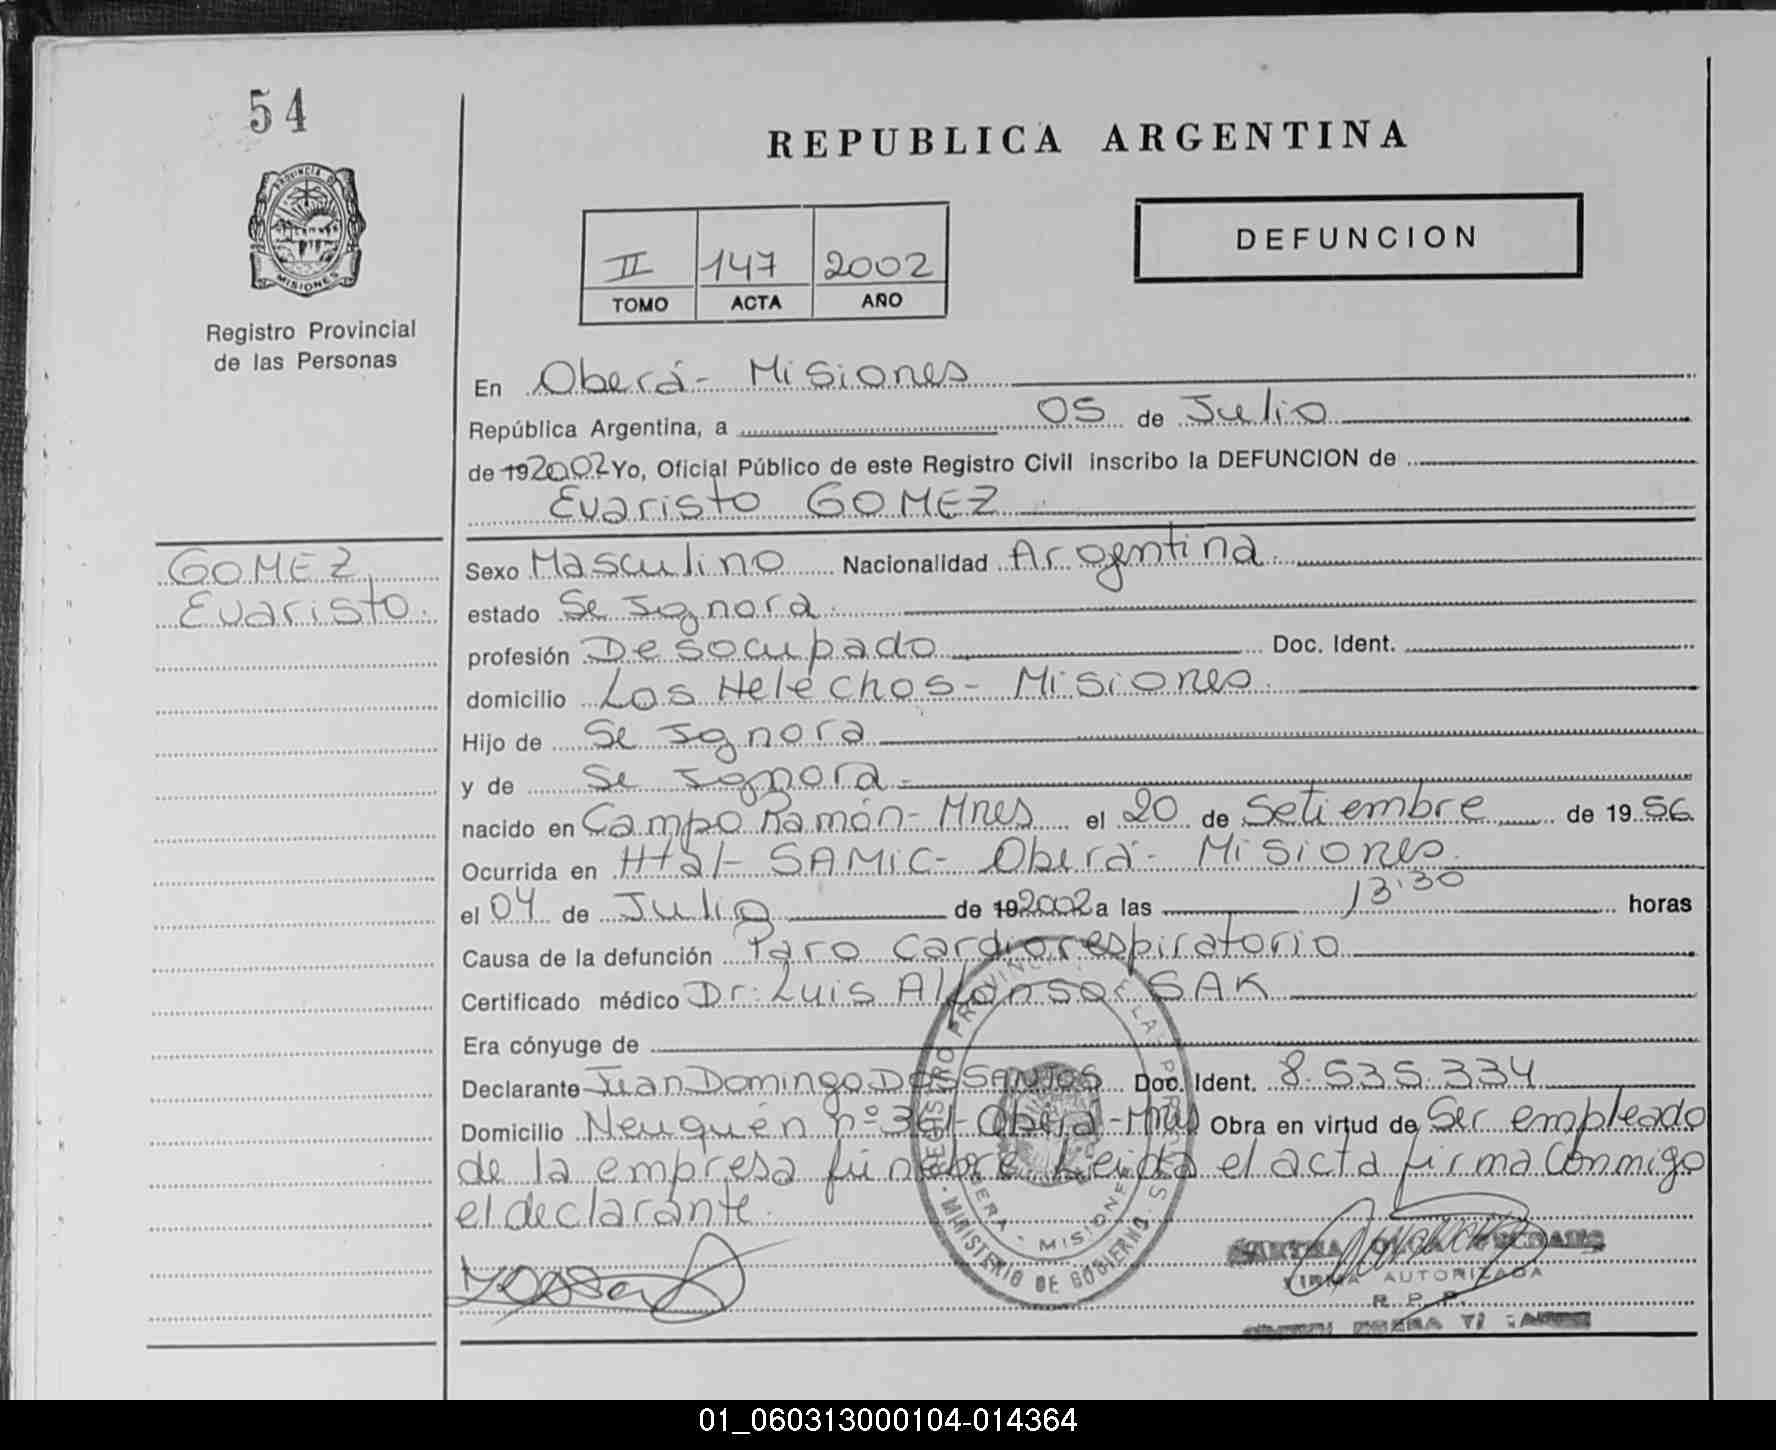 54
PROVINCIA DE
MISIONES
Registro Provincial
de las Personas
REPUBLICA ARGENTINA
II 147 2002
TOMO ACTA AÑO
DEFUNCION
En Oberá - Misiones
República Argentina, a 05 de Julio
de 19 2002 Yo, Oficial Público de este Registro Civil inscribo la DEFUNCION de
Evaristo GOMEZ
GOMEZ,
Evaristo.
Sexo Masculino Nacionalidad Argentina.
estado Se Ignora.
profesión Desocupado Doc. Ident.
domicilio Los Helechos - Misiones.
Hijo de Se Ignora
y de Se Ignora -
nacido en Campo Ramón - Mnes el 20 de Setiembre de 19 56.
Ocurrida en Htal - SAMIC - Oberá - Misiones.
el 04 de Julio de 19 2002 a las 13:30 horas
Causa de la defunción Paro Cardiorespiratorio
Certificado médico Dr. Luis Alfonso SAK
Era cónyuge de
Declarante Juan Domingo DOS SANTOS Doc. Ident. 8.535.334
Domicilio Neuquén nº 361 - Oberá - Mnes Obra en virtud de Ser empleado
de la empresa fúnebre Leida el acta firma Conmigo
el declarante.
REGISTRO PROVINCIAL DE LAS PERSONAS
OBERA - MISIONES
MINISTERIO DE GOBIERNO
FIRMA AUTORIZADA
R. P. P.
01_060313000104-014364